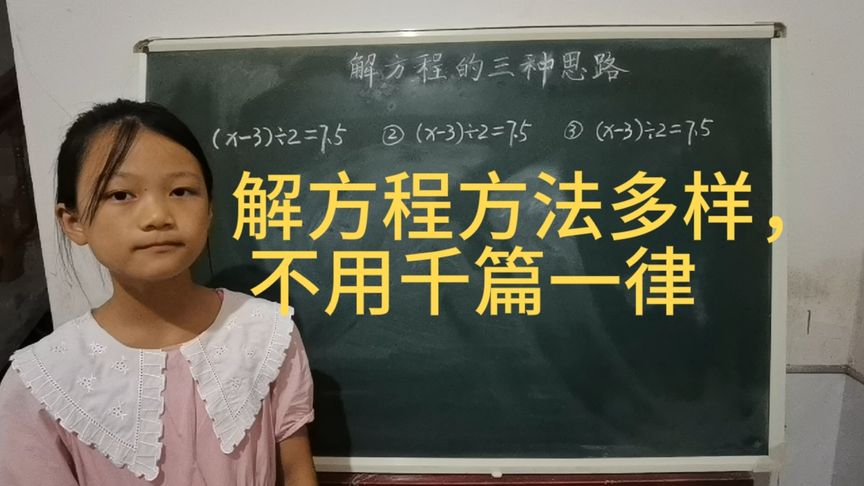 解方程的三种思路
(x-3)÷2=7.5 ② (x-3)÷2=7.5 ③ (x-3)÷2=7.5
解方程方法多样，
不用千篇一律